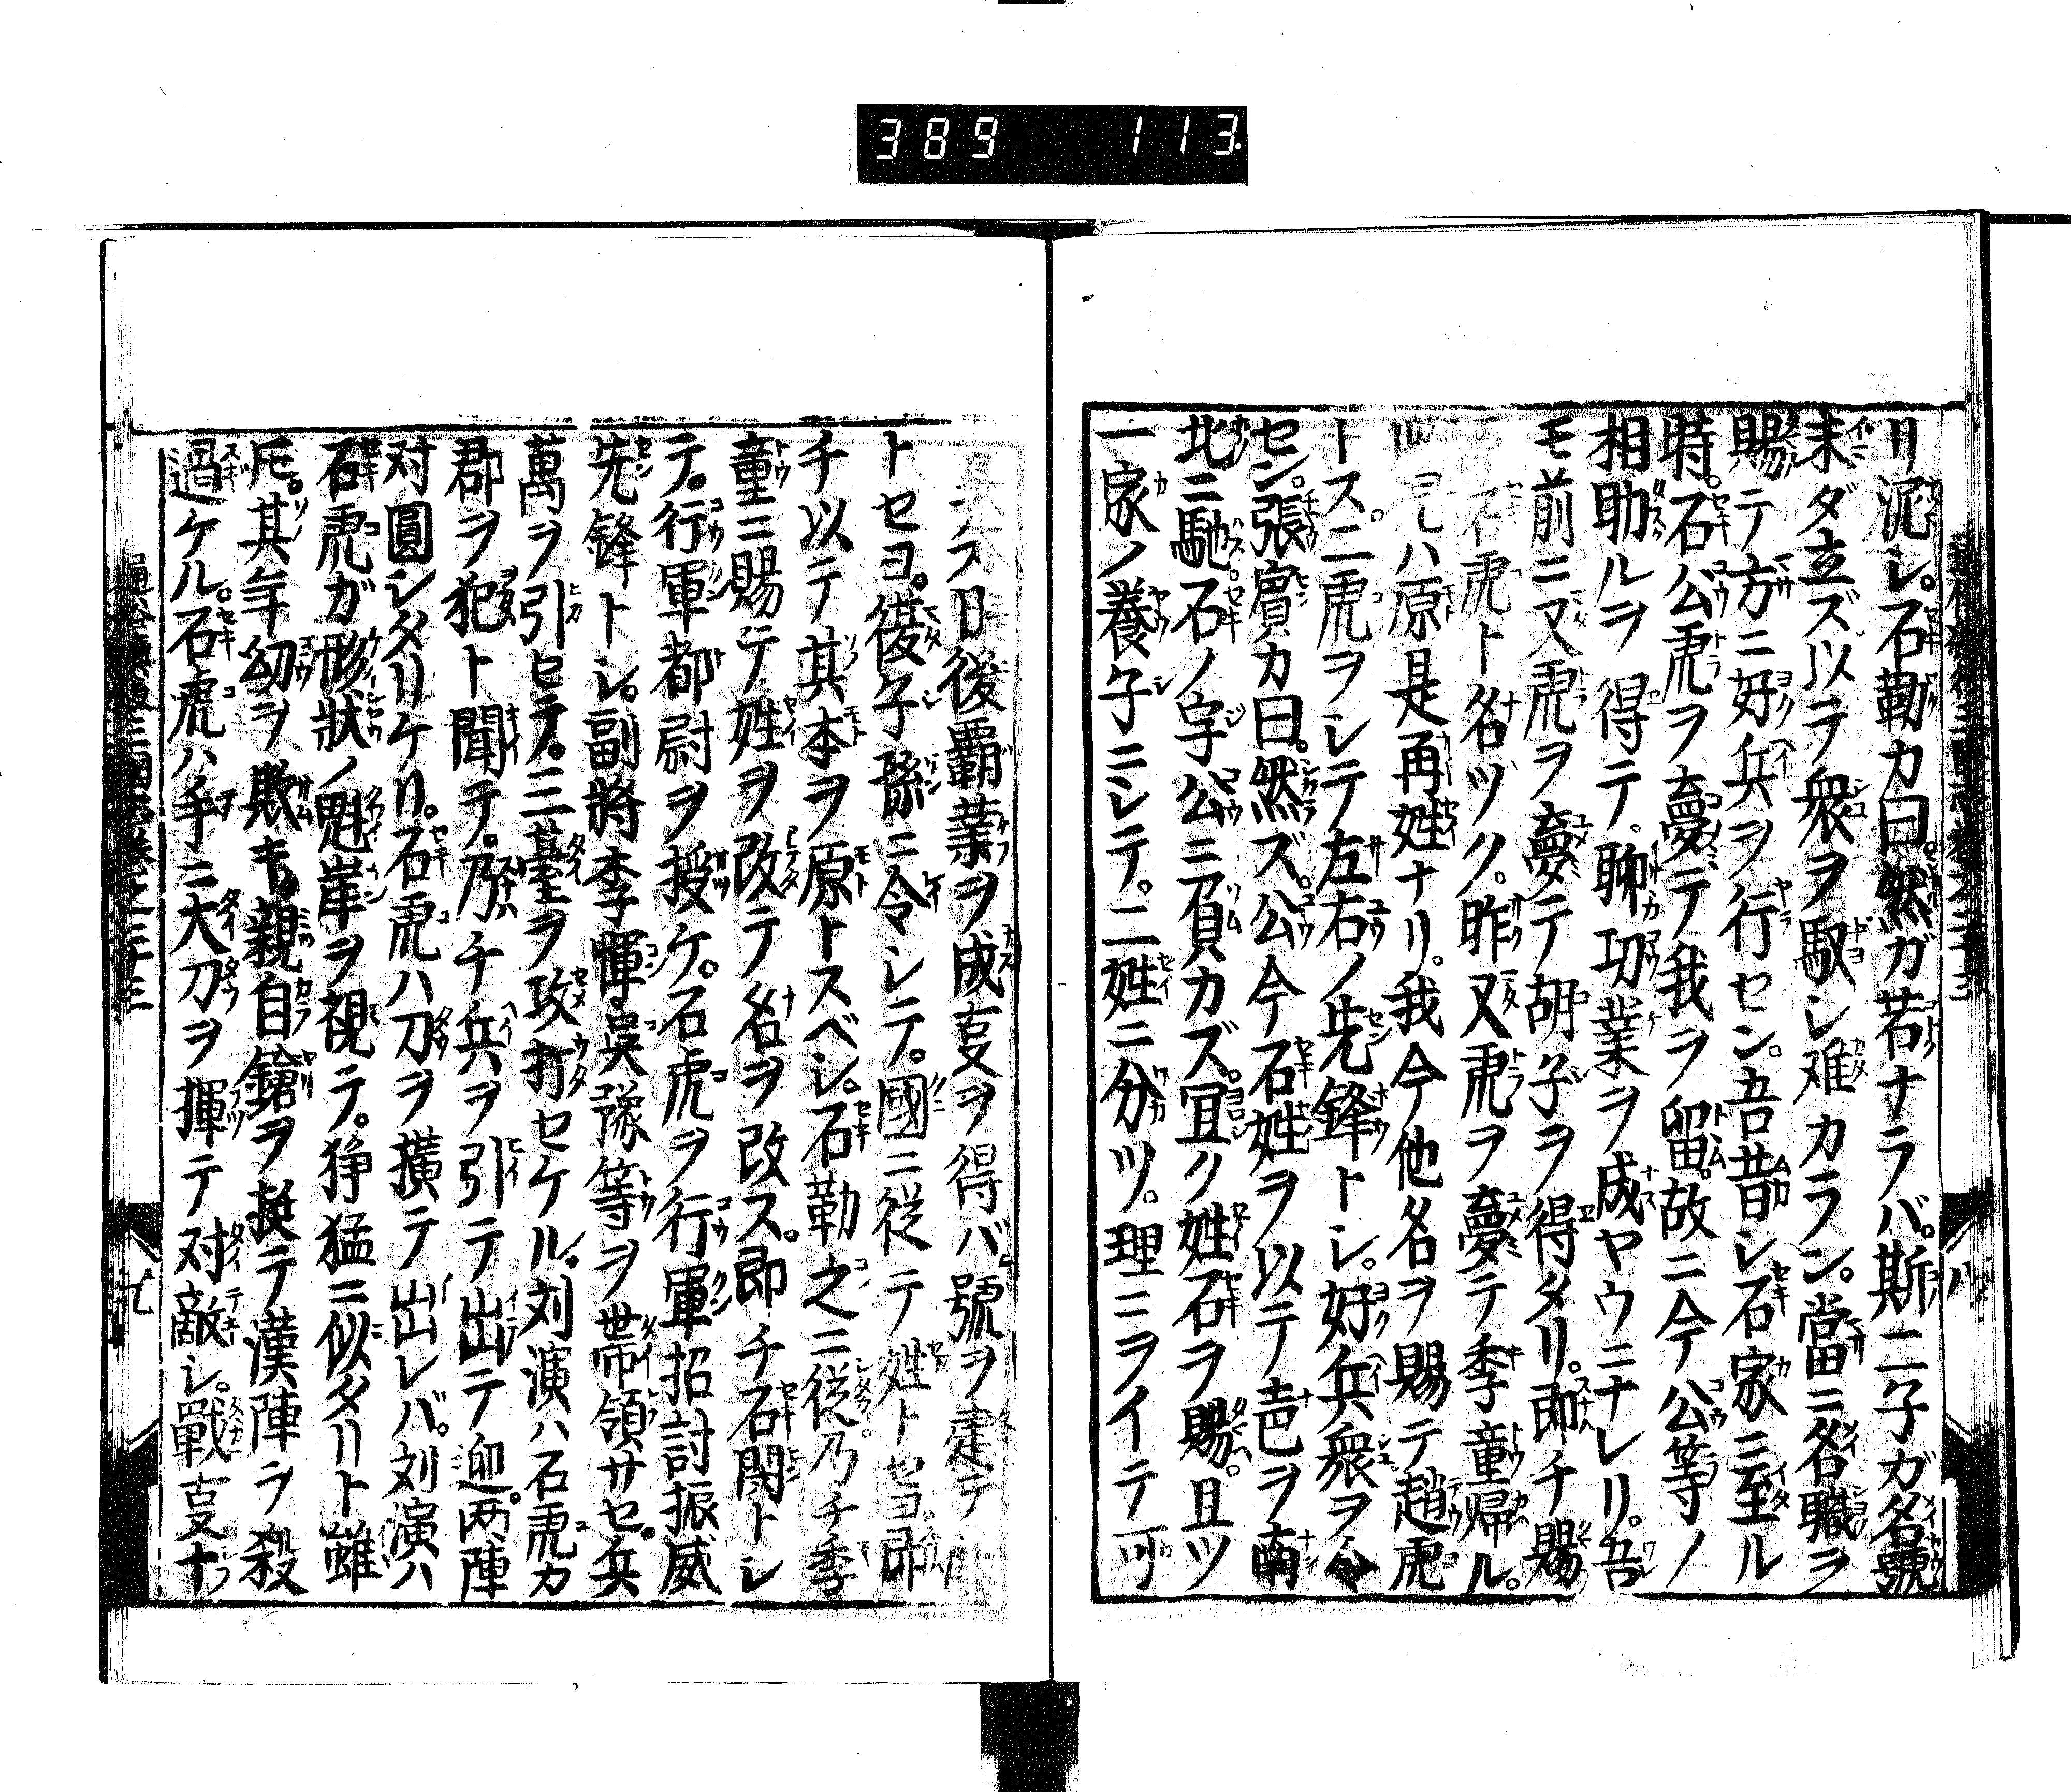 389 113
リ泥シ。石勒カ曰。然ガ若ナラバ。斯二子ガ名號
未ダ立ズ以テ衆ヲ馭シ难カラン。當ニ名職ヲ
賜テ方ニ好兵ヲ行セン。吾昔シ石家ニ至ル
時。石公虎ヲ夢テ我ヲ留。故ニ今公等ノ
相助ルヲ得テ。聊功業ヲ成ヤウニナレリ。吾
モ前ニ又虎ヲ夢テ胡子ヲ得タリ。即チ賜
石虎ト名ヅク。昨又虎ヲ夢テ季童帰ル。
ハ原是再姓ナリ。我今他名ヲ賜テ趙虎
トス。二虎ヲシテ左右ノ先鋒トシ。好兵衆ヲ令
セン。張賓カ曰。然ズ。公今石姓ヲ以テ壱ヲ南
北ニ馳。石ノ字公ニ負カズ。宜ク姓石ヲ賜。且ツ
一家ノ養子ニシテ。二姓ニ分ツ。理ニヲイテ可
後覇業ヲ成叓ヲ得バ。號ヲ建テ
トセヨ。後子孫ニ令シテ。國ニ從テ姓トセヨ。即
チ以テ其本ヲ原トスベシ。石勒之ニ從。乃チ季
童ニ賜テ姓ヲ改テ名ヲ改ス。即チ石閔トシ
テ。行軍都尉ヲ授ケ。石虎ヲ行軍招討振威
先鋒トシ。副將李惲吴豫等ヲ帯領サセ。兵
萬ヲ引セテ。三臺ヲ攻打セケル。刘演ハ石虎カ
郡ヲ犯ト聞テ。乃チ兵ヲ引テ出テ迎。两陣
对圓シタリケリ。石虎ハ刀ヲ擴テ出レバ。刘演ハ
石虎ガ形状ノ魁岸ヲ視テ。狰猛ニ似タリト雖
𪜈。其年幼ヲ欺キ。親自鎗ヲ挺テ漢陣ヲ殺
過ケル。石虎ハ手ニ大刀ヲ揮テ对敵シ。戰叓十